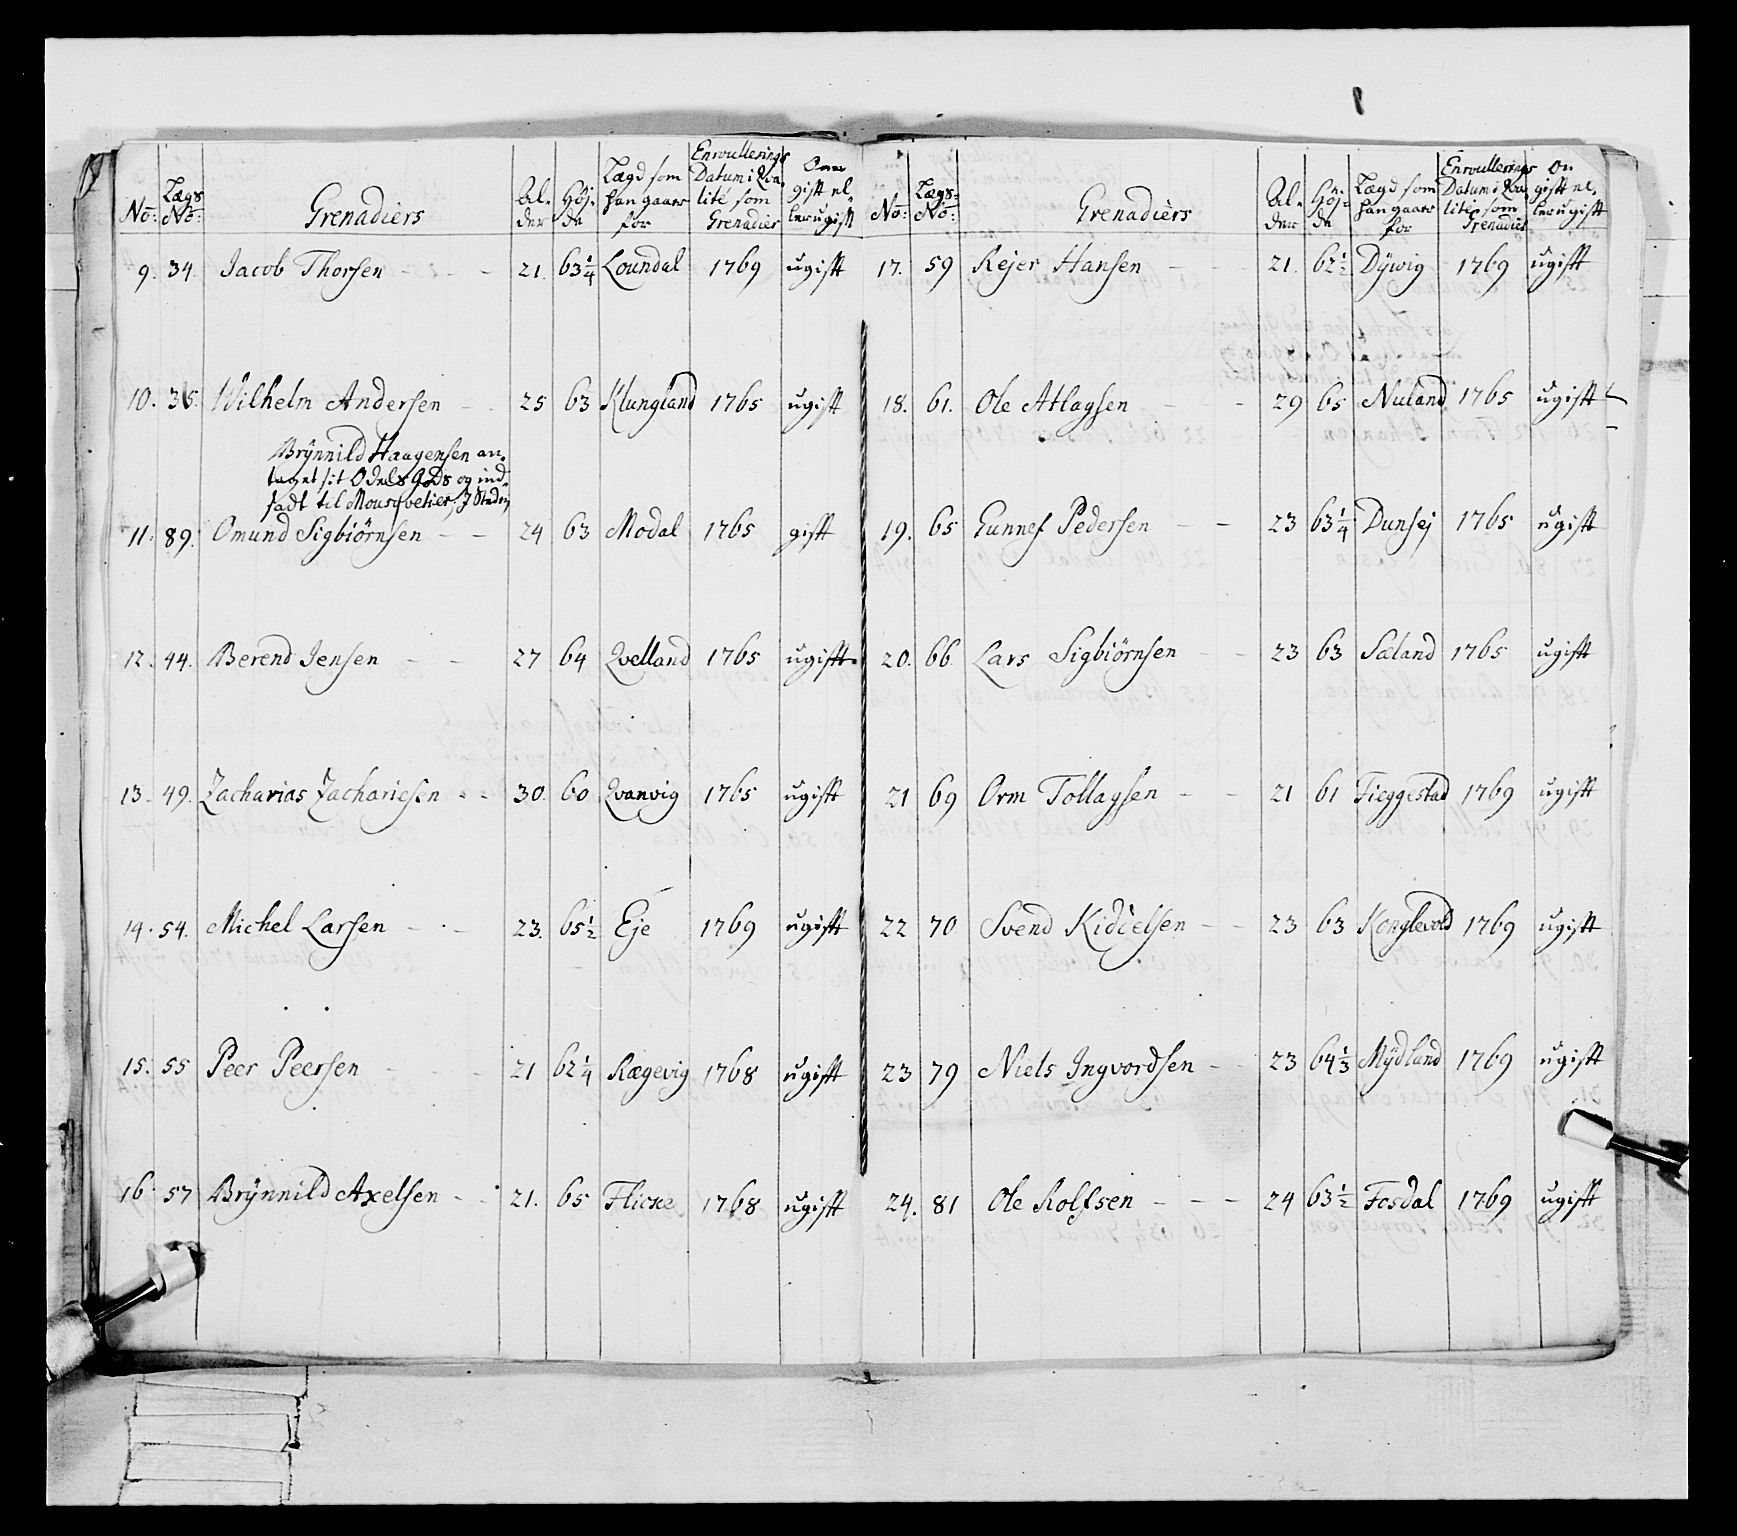 No: Lægs No: Grenadiers Al- der Höj- de Lægd som han gaaer for Enroullerings Datum i Qva- lité som Grenadier Om gift el- ler ugift
9. 34. Jacob Thorsen - - - 21. 63 1/4 Loundal 1769 ugift
10. 35. Wilhelm Andersen - - 25 63 Klungland 1765 ugift
Brÿnnild Haagensen an-
taget sit Odels Gods og ind-
sadt til Mousqvetier, I Steden
11. 89. Omund Sigbiörnsen - - 24 63 Modal 1765 gift
12. 44. Berend Jensen - - 27 64 Qvelland 1765 ugift
13. 49. Zacharias Zachariesen - - 30. 60 Qvanvig 1765 ugift
14. 54. Michel Larsen - - - 23. 65 1/2 Eje 1769 ugift
15. 55 Peer Peersen - - - 21 62 1/4 Rægevig 1768 ugift
16 57 Brÿnnild Axelsen - - 21. 65 Flicke 1768 ugift
No: Lægs- No: Grenadiers Al- der Höj- de Lægd som han gaaer for Enroullerings Datum i Qva- lité som Grenadier Om gift el- ler ugift
17. 59 Rejer Hansen - - - 21. 62 1/2 Dÿwig 1769 ugift
18. 61. Ole Atlagsen - - 29 65 Nuland 1765 ugift
19. 65 Gunnef Pedersen - - 23 63 1/4 Dunsej 1765 ugift
20. 66. Lars Sigbiörnsen - - 23 63 Sæland 1765 ugift
21 69 Orm Tollagsen - - 21 61 Fieggestad 1769 ugift
22 70 Svend Kiddelsen - - 23 63 Konglevold 1769 ugift
23 79 Niels Ingvordsen - 23 64 1/3 Mÿdland 1769 ugift
24. 81 Ole Rolfsen - - - 24 63 1/2 Fosdal 1769 ugift